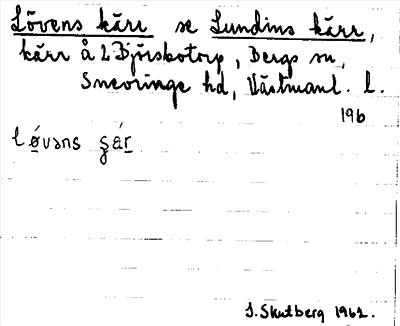 Lövens kärr se Lundins kärr,
kärr å L Björskotorp, Bergs sn,
Snevringe hd, Västmanl. l.
196
lǿvəns ʂár
S. Skutberg 1962.